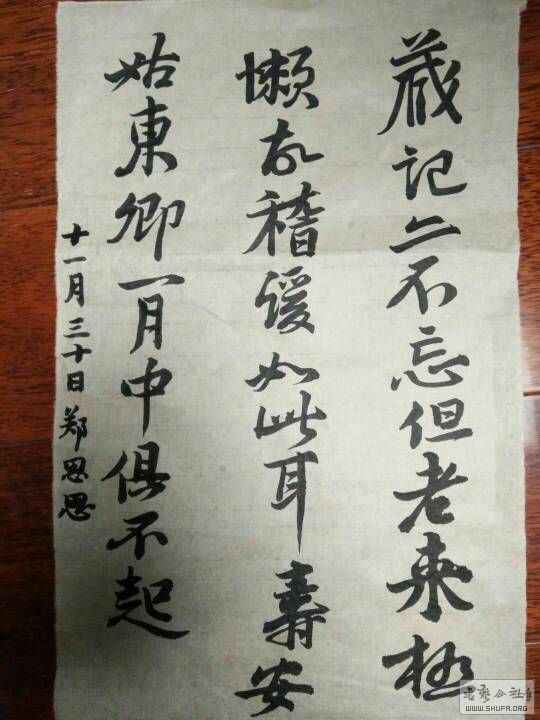 蔵记亦不忘但老来极
懒故稽缓如此耳寿安
姑東卿一月中俱不起
十一月三十日郑思思
书艺公社
WWW.SHUFA.ORG